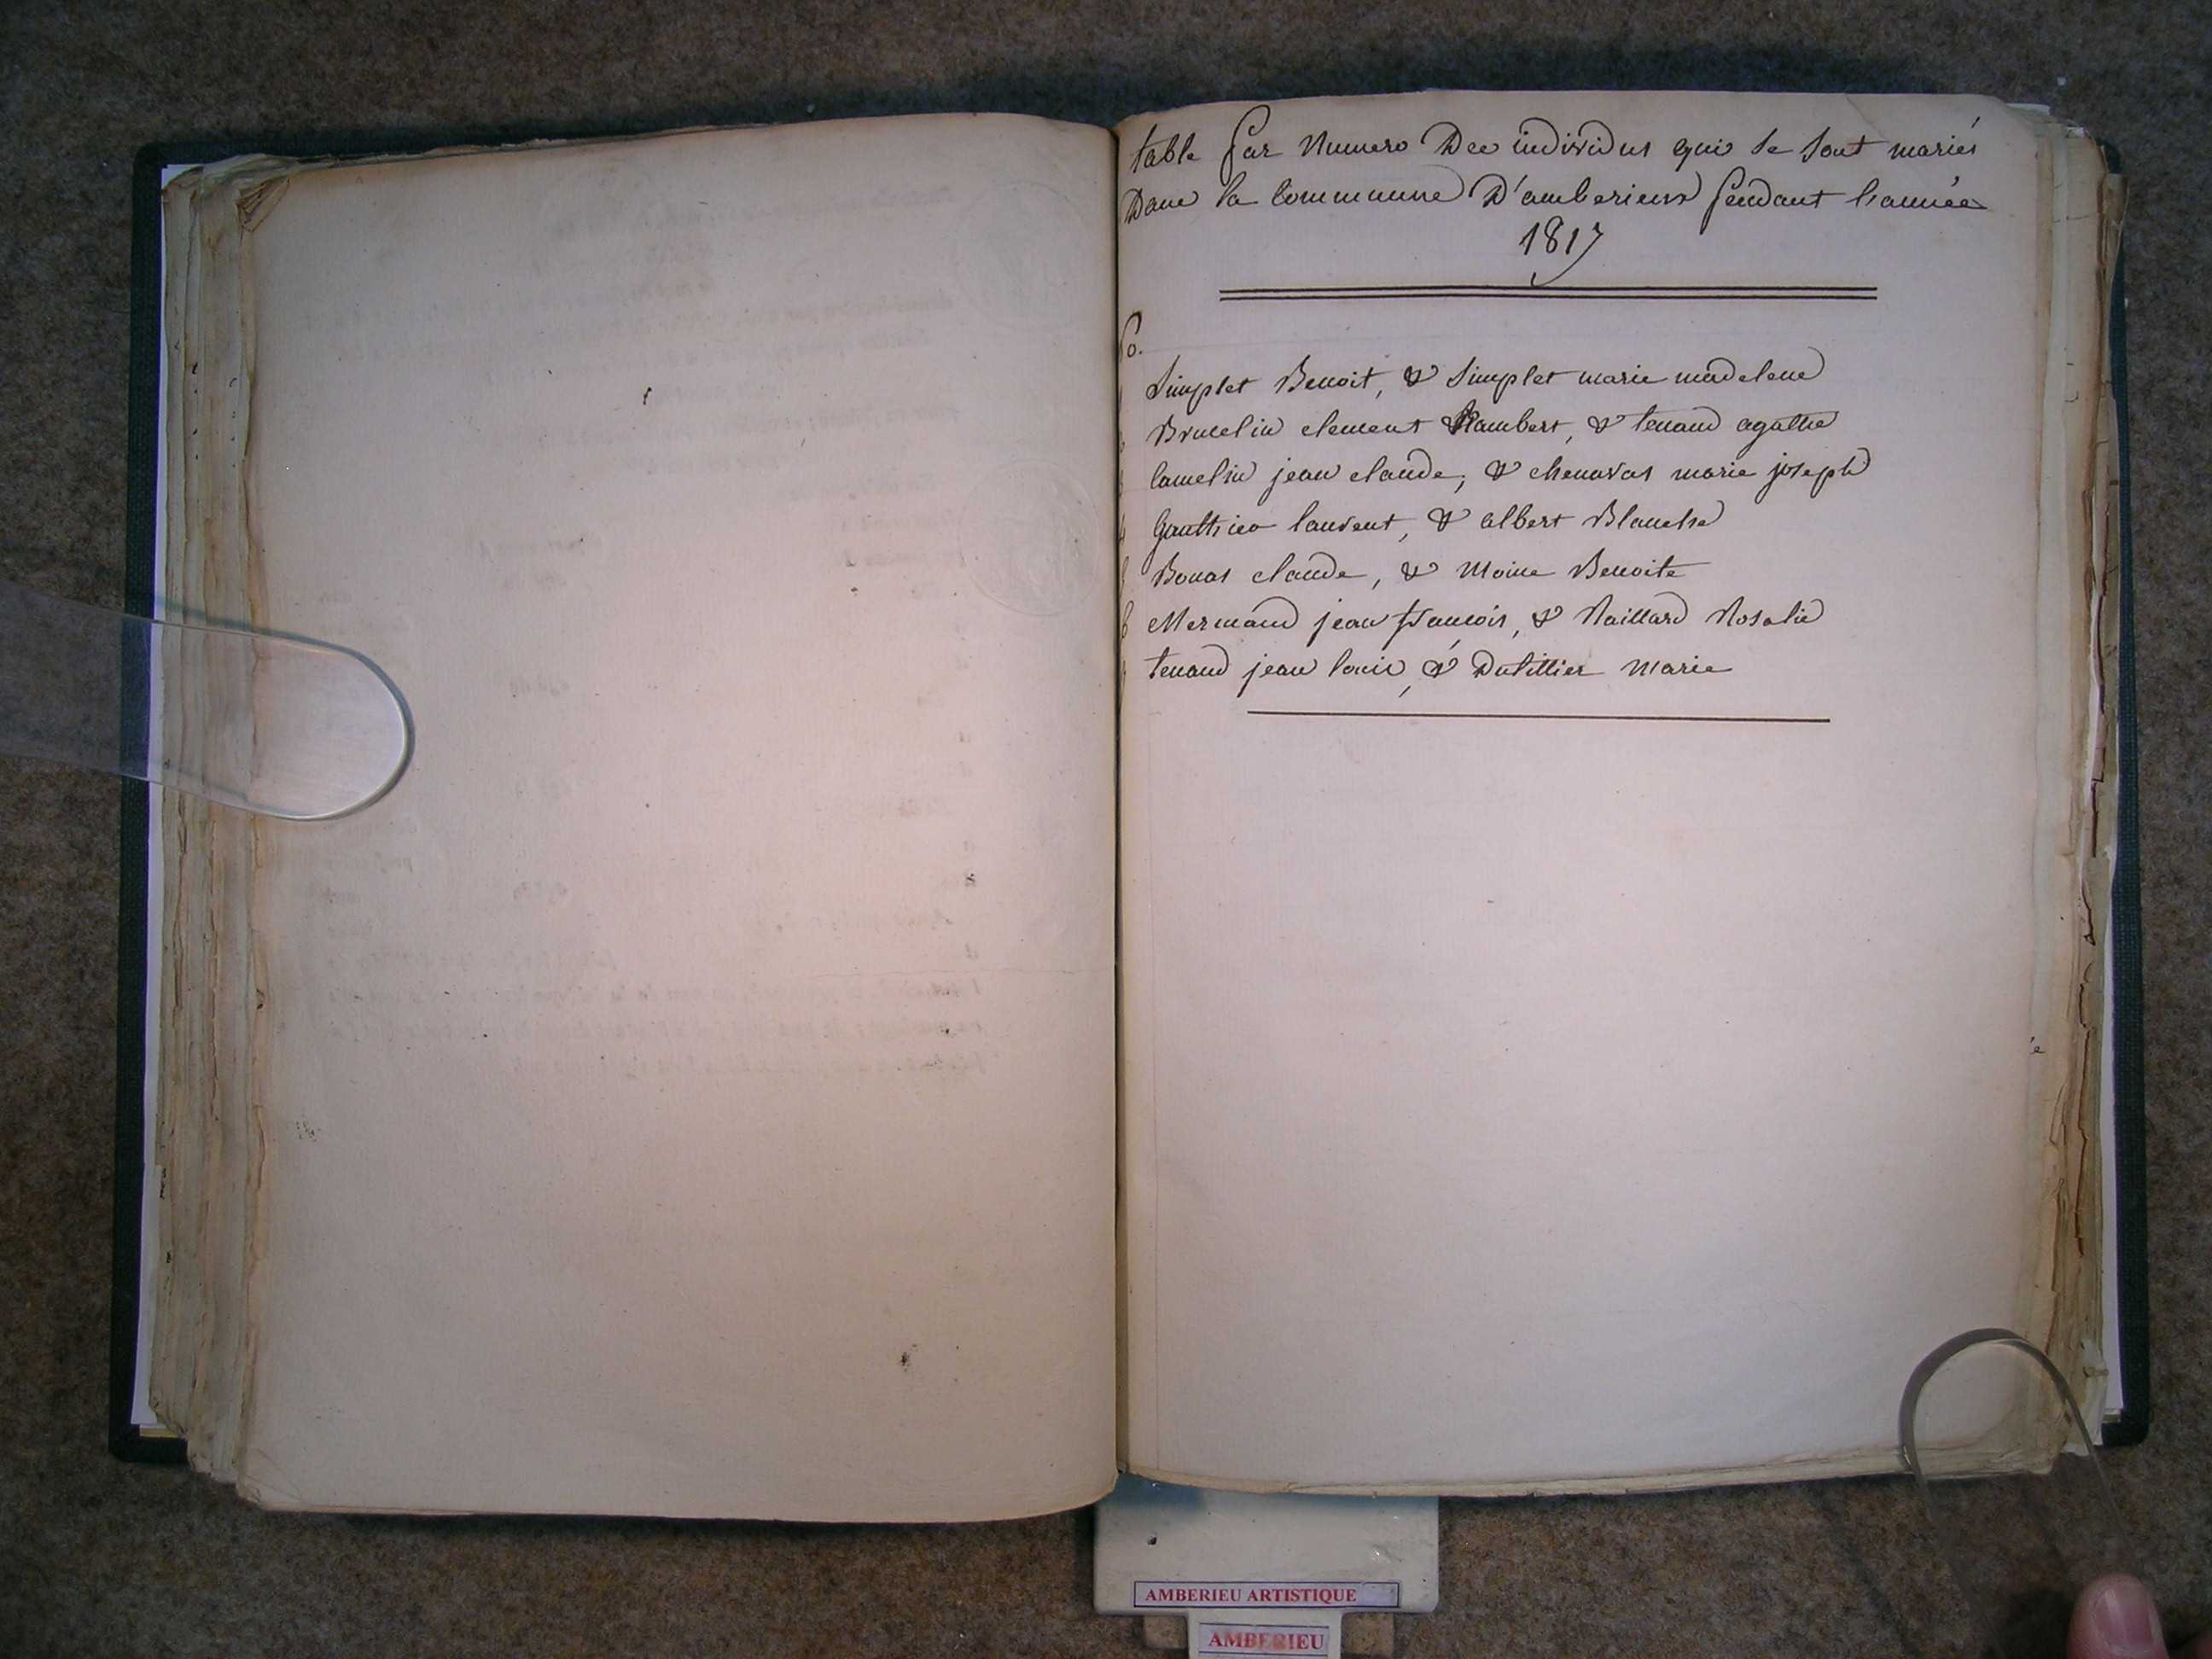 table par Numero Des individus qui se sont mariés
Dans la commune D'amberieux pendant l'année
1817
Simplet Benoit, & Simplet marie madelene
Brucelin clement Rambert, & tenand agathe
camelin jean claude, & chenavas marie joseph
4 Gauthier laurent, & albert Blanche
Bonas claude, & Moine Benoite
6 Mermand jean françois, & Naillard Rosalie
tenand jean louis, & Dutillier Marie
AMBERIEU ARTISTIQUE
AMBERIEU